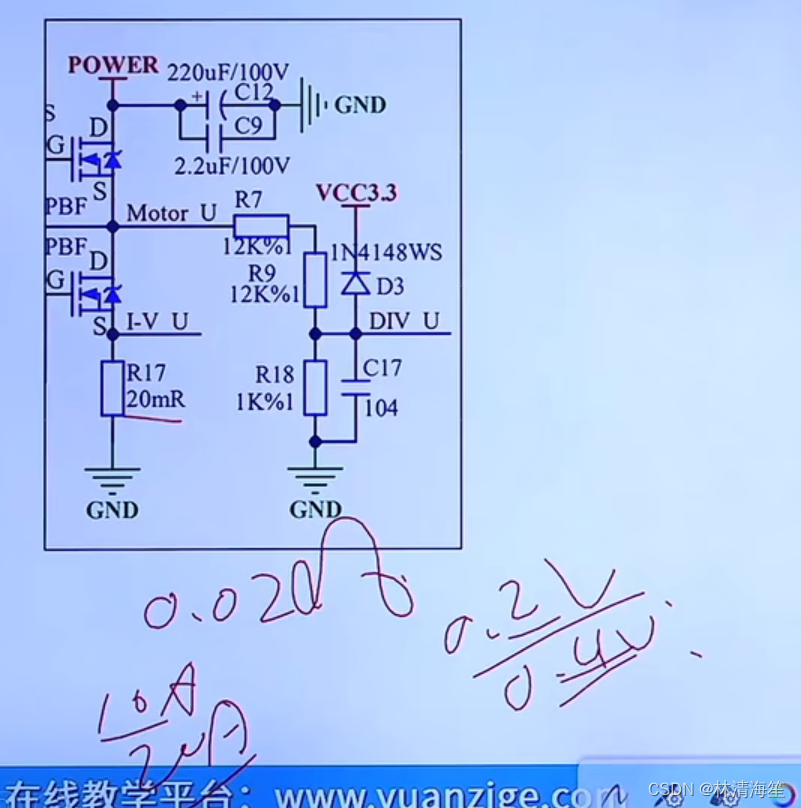 POWER
220uF/100V
+
C12
GND
C9
2.2uF/100V
S
D
G
S
PBF
Motor U
R7
12K%1
VCC3.3
PBF
D
G
S
1N4148WS
R9
12K%1
D3
I-V U
DIV U
R17
20mR
R18
1K%1
C17
104
GND
GND
0.02Ω
0.2V
0.4V
10A
20A
在线教学平台：www.yuanzige.com
CSDN @林清海笙